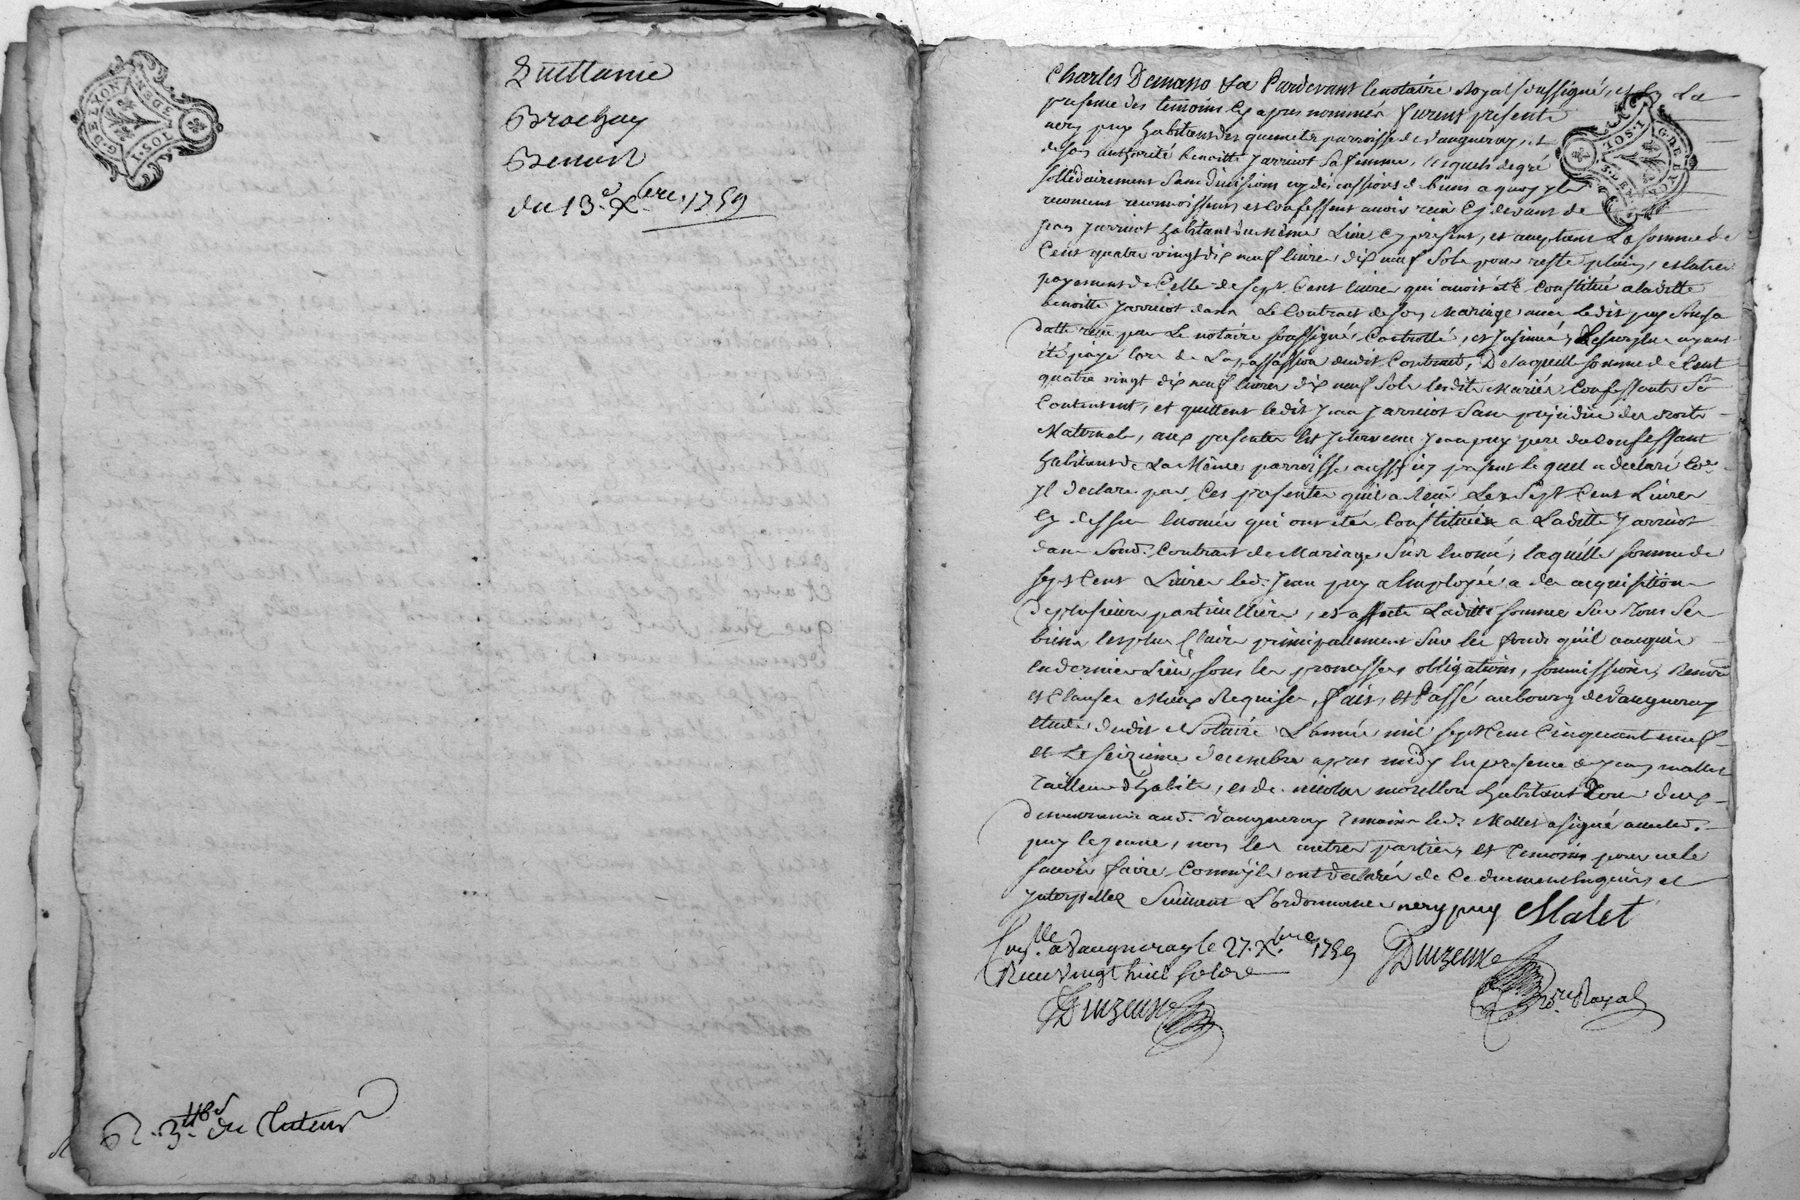 Quittance
Brochay
Benoist
du 13.e Xbre. 1759
G. DE LYON
1. SOL
du Tuteur
Charles Demano &a Pardevant le notaire Royal soussigné, et En La
presence des temoins Cy apres nommés furent presents
nery puy habitans des quemeter parroisse de vaugneray, et
de son authorité benoitte Jarricot sa femme, lesquels de gré
sollidairement sans divisions ny discussions de biens a quoy ils
renoncent reconnoissent et Confessent avoir reçu Cy devant de
Jean Jarricot habitant du Même Lieu Cy present, et acceptant La somme de
Cent quatre vingt dix neuf livres dix neuf sols pour reste, plain, et entier
payement de Celle de sept Cent livres qui avoit été Constitué a laditte
benoitte Jarricot dans Le Contrat de son Mariage avec Ledit puy sous sa
datte reçu par Le notaire soussigné, Controllé, et Insinué, Le surplus ayant
été payé lors de La passassion dudit Contrat, De laquelle somme de Cent
quatre vingt dix neuf livres dix neuf sols lesdits Mariés Confessants Se
Contentent, et quittent ledit Jean Jarricot Sans prejudice des droits
Maternels, aux presentes Est Intervenu Jean puy pere du Confessant
habitant de La Même parroisse aussy Cy present lequel a declaré Co.e
Il declare par Ces presentes qu'il a Reçu Les Sept Cent Livres
Cy dessus Enoncé qui ont étés Constituées a Laditte Jarricot
dans Sond. Contract de Mariage Sus Enoncé, laquelle somme de
sept Cent Livres led. Jean puy a Employée a des acquisitions
de plusieurs particuliers, et affecte Laditte somme Sur Tous Ses
biens les plus Clairs principallement Sur les fonds qu'il a acquis
en dernier Lieu, sous les promesses obligations, soumissions, Renon.ns
et Clauses Mieux Requises, fait, et Passé au bourg de Vaugneray
étude dudit Notaire L'année mil sept Cent Cinquant neuf
et Le seizieme decembre apres midy En presence de Jean mallet
Tailleur d'habits, et de nicolas morellon habitant Tous deux
demeurants aud. Vaugneray temoins led. Mallet a signé avec led.
puy le jeune, non les autres parties, et temoins pour ne le
savoir faire Comm'ils ont déclarés de Ce duement Enquis et
Interpellés Suivant L'ordonnance nery puy Malet
Con.lle a Vaugneray le 27. Xbre 1759
Reçu Vingt huit sols
Duzeux
Duzeux
n.re Royal